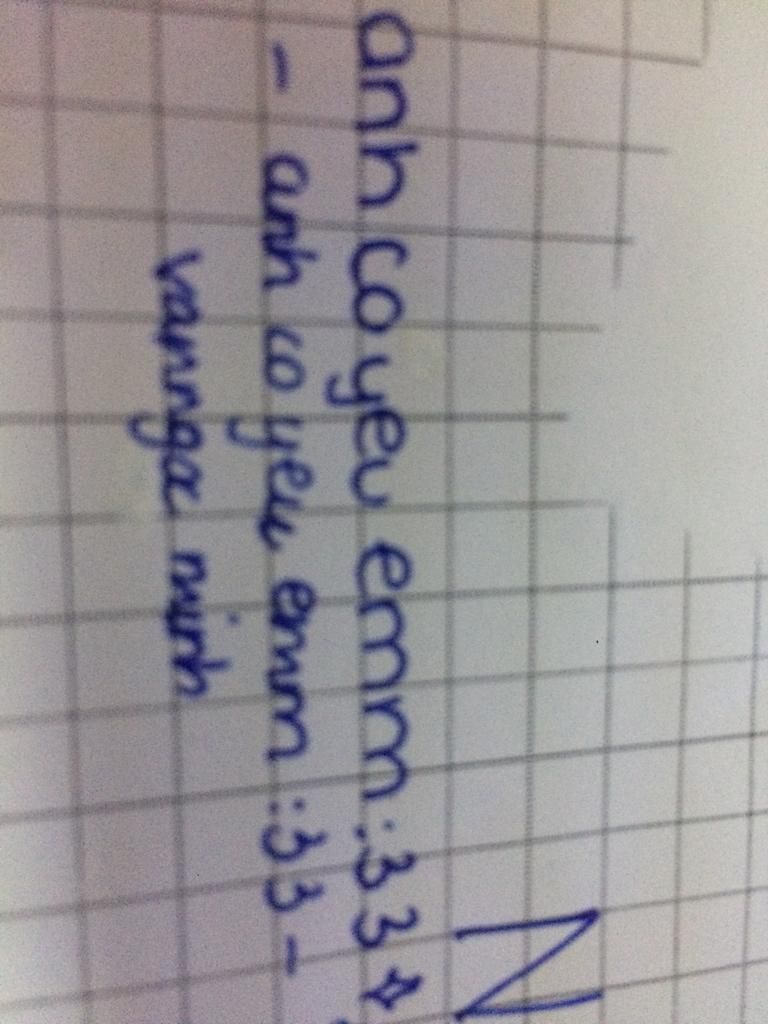 N
anh co yeu emm :33 ✧
- anh co yeu emm :33 -
vannga minh